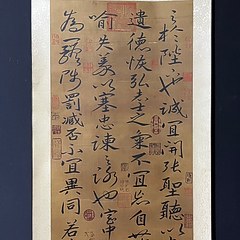 之於陛下也誠宜開張聖聽以
遺德恢弘志士之氣不宜妄自
喻失義以塞忠諫之路也宮中
為一體陟罰臧否不宜異同若